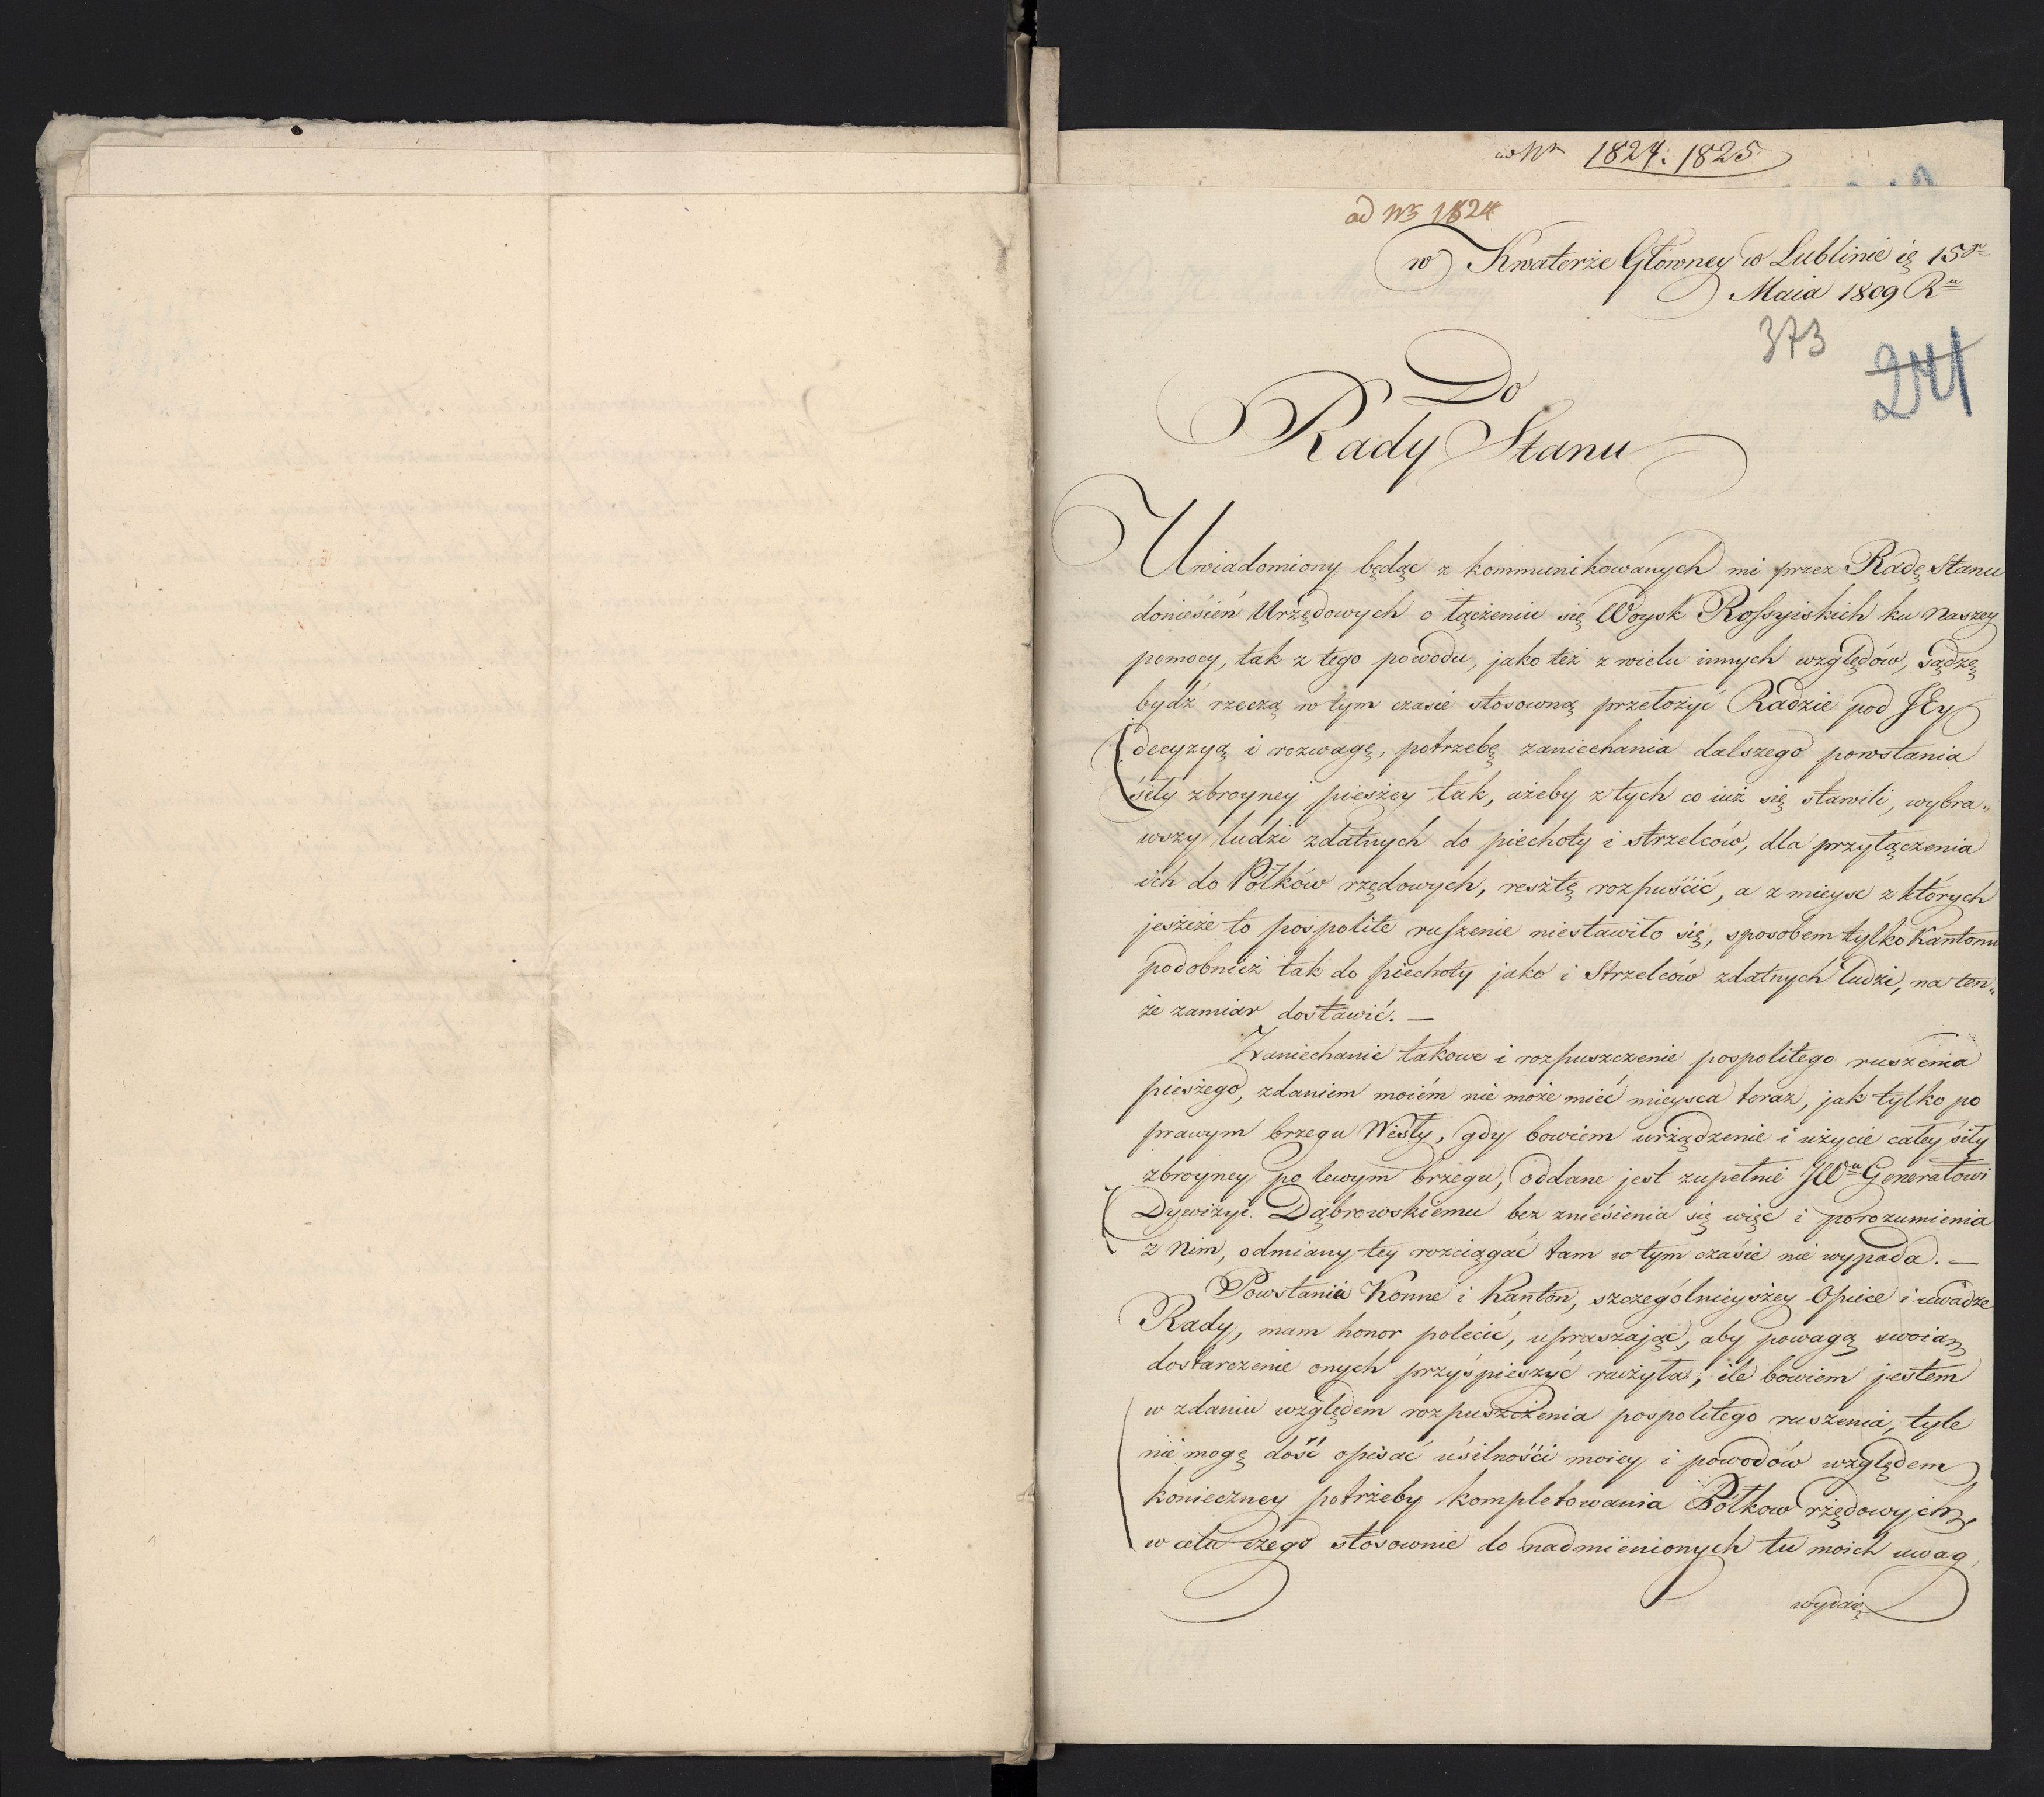 ad Nr 1824. 1825
ad Nr 1824
w Kwaterze Głowney w Lublinie 15go
Maia 1809 Ru
373
241
Do
Rady Stanu
Uwiadomiony będąc z kommunikowanych mi przez Radę Stanu
doniesień Urzędowych o łączeniu się Woysk Rossyiskich ku naszey
pomocy, tak z tego powodu, jako też z wielu innych względów, sądzę
bydź rzeczą w tym czasie stosowną przełożyć Radzie pod JEy
decyzyą i rozwagę, potrzebę zaniechania dalszego powstania
siły zbroyney pieszey tak, ażeby z tych co iuż się stawili, wybra„
wszy ludzi zdatnych do piechoty i strzelców, dla przyłączenia
ich do Półków rzędowych, resztę rozpuścić, a z mieysc z których
jeszcze to pospolite ruszenie niestawiło się, sposobem tylko Kantonu
podobnież tak do piechoty jako i Strzelców zdatnych ludzi, na ten„
że zamiar dostawić. —
Zaniechanie takowe i rozpuszczenie pospolitego ruszenia
pieszego, zdaniem moiém nie może mieć mieysca teraz, jak tylko po
prawym brzegu Wisły, gdy bowiem urządzenie i użycie całey siły
zbroyney po lewym brzegu, oddane jest zupełnie JWu Generałowi
Dywizyi Dąbrowskiemu bez zniesienia się więc i porozumienia
z Nim, odmiany tey rozciągać tam w tym czasie nie wypada. —
Powstania Konne i Kanton, szczególnieyszey Opiece i uwadze
Rady, mam honor polecić, upraszając, aby powagą swoią
dostarczenie onych przyśpieszyć raczyła; ile bowiem jestem
w zdaniu względem rozpuszczenia pospolitego ruszenia, tyle
nie mogę dość opisać usilności moiey i powodów względem
konieczney potrzeby kompletowania Półkow rzędowych,
w celu czego stosownie do nadmienionych tu moich uwag,
wydaię